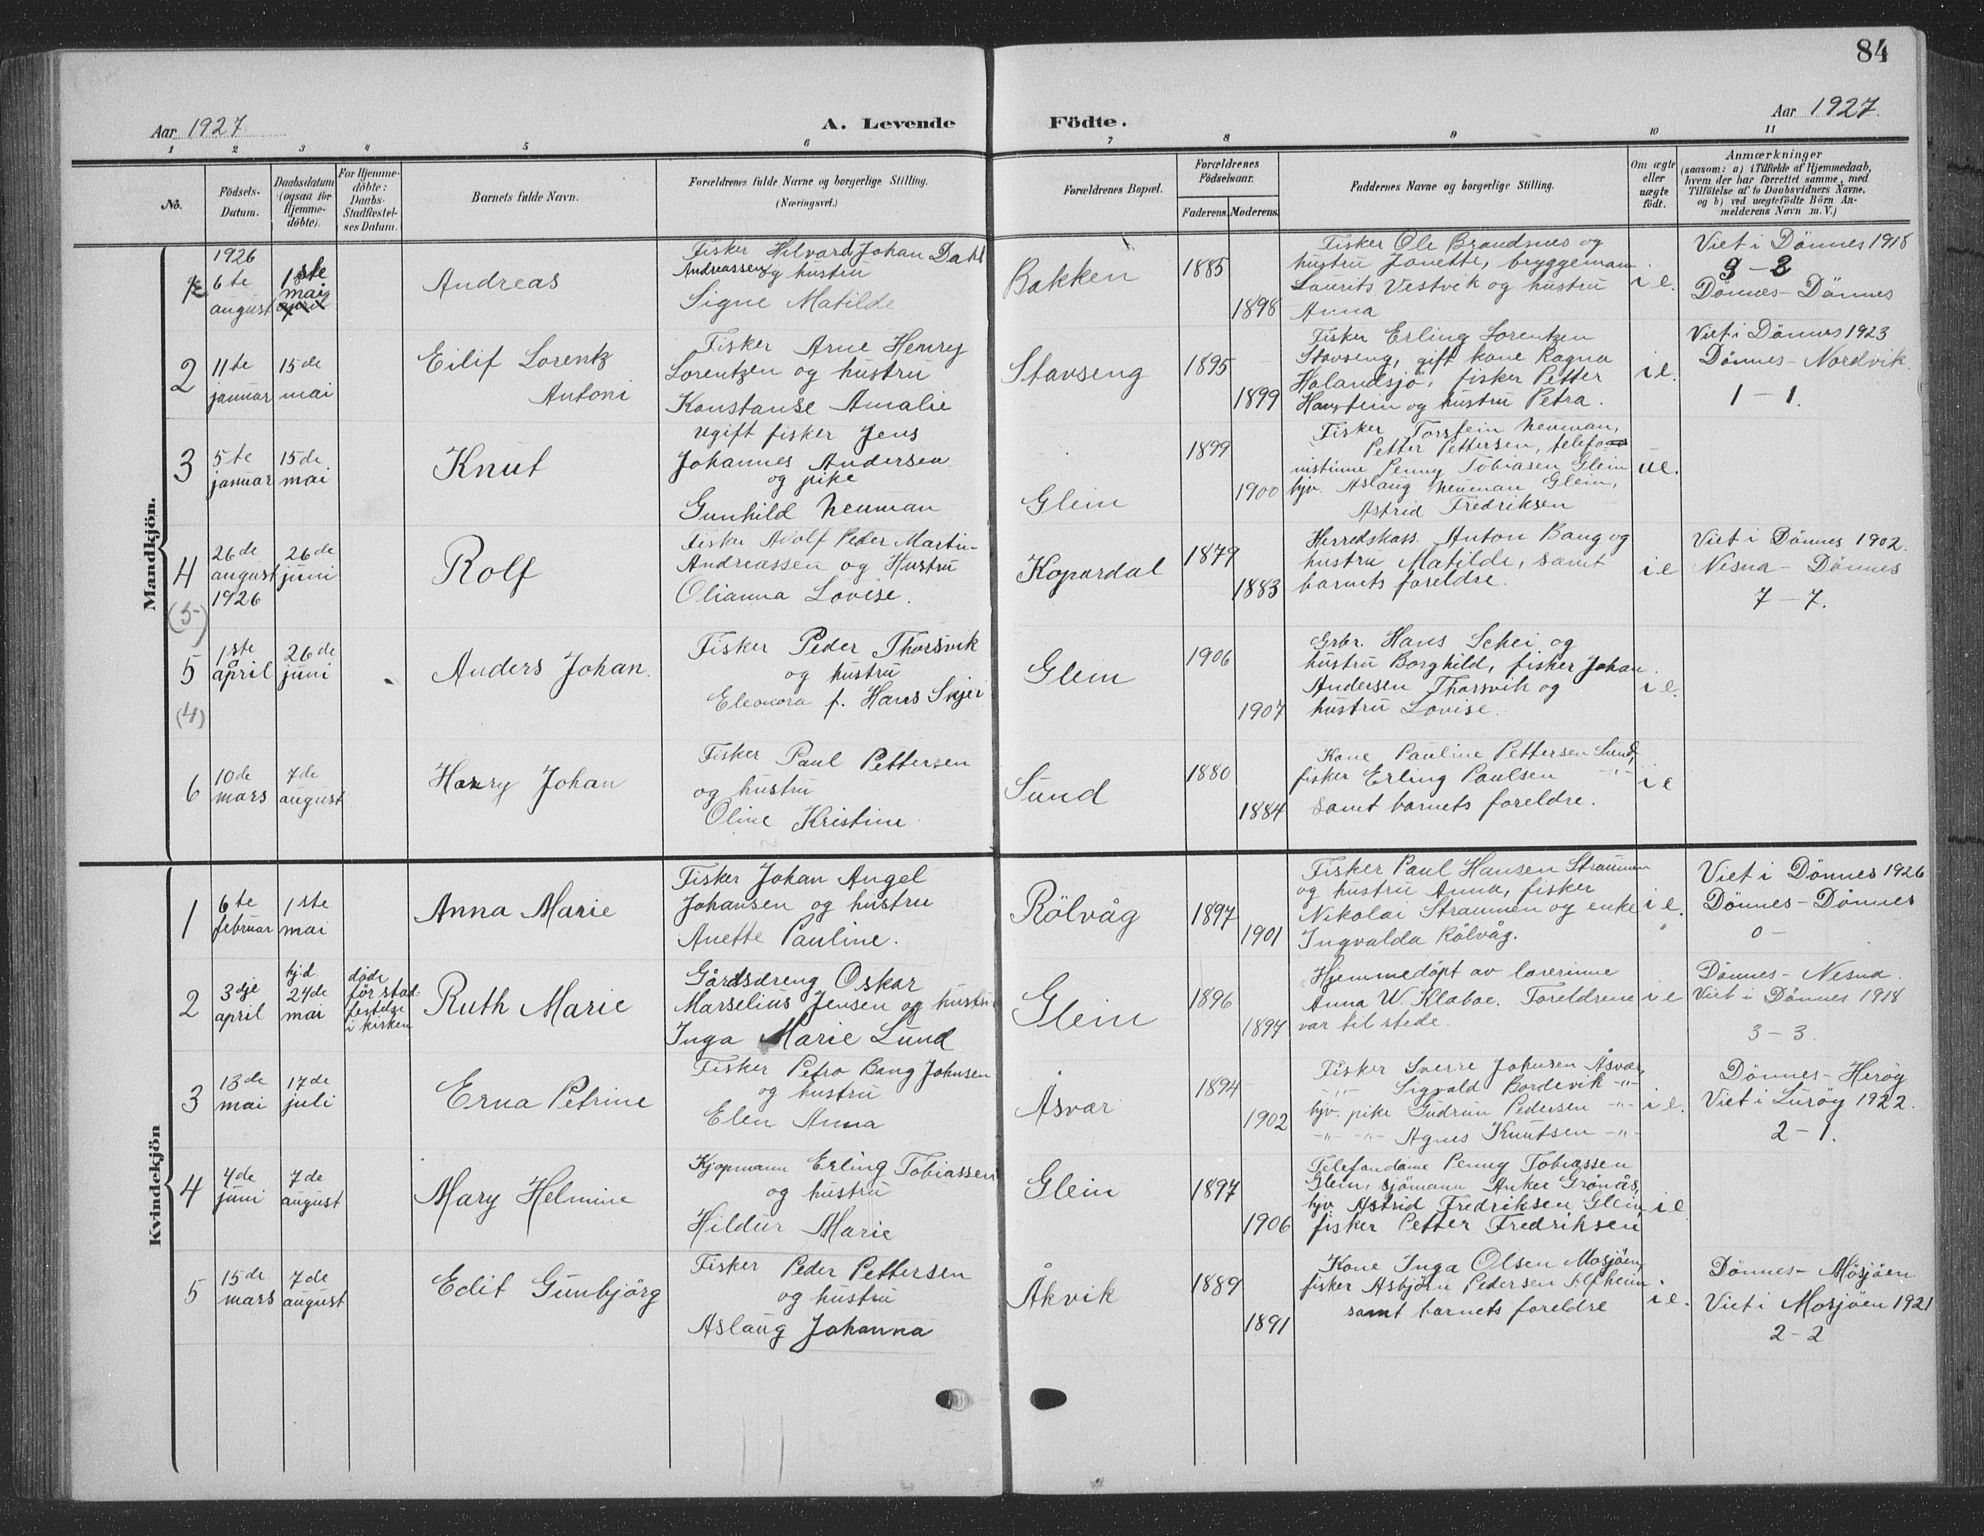 84
Aar 1927.
A. Levende
Födte.
Aar 1927.
1 2 3 4 5 6 7 8 9 10 11
No.
Födsels-
Datum.
Daabsdatum
(ogsaa for
Hjemme-
döbte).
For Hjemme-
döbte:
Daabs-
Stadfæstel-
ses Datum.
Barnets fulde Navn.
Forældrenes fulde Navne og borgerlige Stilling.
(Næringsvei.)
Forældrenes Bopæl.
Forældrenes
Födselsaar.
Faderens. Moderens.
Faddernes Navne og borgerlige Stilling.
Om ægte
eller
uægte
födt.
Anmærkninger
(saasom: a) i Tilfælde af Hjemmedaab,
hvem der har forrettet samme, med
Tilföielse af to Daabsvidners Navne,
og b) ved uægtefödte Börn An-
melderens Navn m. V.)
Mandkjön.
1926
6te
august
1ste
mai
april
Andreas
Fisker Hilvard Johan Dahl
Andreassen og hustru
Signe Matilde
Bakken
1885
1898
Fisker Ole Brandsnes og
hustru Jonette, bryggemann
Laurits Vestvik og hustru
Anna
i e.
Viet i Dönnes 1918
3 - 2
Dönnes - Dönnes
2
11te
januar
15de
mai
Eilif Lorentz
Antoni
Fisker Arne Henry
Lorentzen og hustru
Konstanse Amalie
Stavseng
1895
1899
Fisker Erling Lorentzen
Stavseng, gift kone Ragna
Holandsjö, fisker Petter
Haustein og hustru Petra.
i e.
Viet i Dönnes 1923
Dönnes - Nordvik.
1 - 1.
3
5te
januar
15de
mai
Knut
Ugift fisker Jens
Johannes Andersen
og pike
Gunhild Neuman
Glein
1899
1900
Fisker Torstein Neuman,
Petter Pettersen, telefo
nistinne Penny Tobiasen Glein
hjv. Aslaug Neuman Glein,
Astrid Fredriksen
ue.
4
(5)
26de
august
1926
26de
juni
Rolf
Fisker Adolf Peder Martin
Andreassen og Hustru
Olianna Lovise.
Kopardal
1879
1883
Herredskass. Anton Bang og
hustru Matilde, samt
barnets foreldre.
i e
Viet i Dönnes 1902.
Nesna - Dönnes
7 - 7.
5
(4)
1ste
april
26de
juni
Anders Johan.
Fisker Peder Thorsvik
og hustru
Eleonora f. Hans Skjei
Glein
1906
1907
Grbr. Hans Schei og
hustru Borghild, fisker Johan
Andersen Thorsvik og
hustru Lovise.
i e.
6
10de
mars
7de
august
Harry Johan
Fisker Paul Pettersen
og hustru
Oline Kristine
Sund
1880
1884
Kone Pauline Pettersen Sund,
fisker Erling Paulsen -"-
samt barnets foreldre.
i e
Kvindekjön
1
6te
februar
1ste
mai
Anna Marie
Fisker Johan Angel
Johansen og hustru
Anette Pauline.
Rölvåg
1897
1901
Fisker Paul Hansen Straumen
og hustru Anna, fisker
Nikolai Straumen og enke
Ingvalda Rölvåg.
i e.
Viet i Dönnes 1926
Dönnes - Dönnes
0 -
2
3dje
april
hj.d
24de
mai
døde
før stad
festelse
i kirken
Ruth Marie
Gårdsdreng Oskar
Marselius Jensen og hustru
Inga Marie Lund
Glein
1896
1897
Hjemmedöpt av lærerinne
Anna W. Klaboe. Foreldrene
var til stede.
i e
Dönnes - Nesna.
Viet i Dönnes 1918
3 - 3.
3
13de
mai
17de
juli
Erna Petrine
Fisker Petro Bang Johnsen
og hustru
Elen Anna
Åsvær
1894
1902
Fisker Sverre Johnsen Åsvær,
-"- Sigvald Bordevik -"-
hjv. pike Gudrun Pedersen -"-
-"- -"- Agnes Knutsen -"-
i e.
Dönnes - Heröy
Viet i Luröy 1922.
2 - 1.
4
4de
juni
7de
august
Mary Helmine
Kjøpmann Erling Tobiassen
og hustru
Hildur Marie
Glein
1897
1906
Telefondame Penny Tobiassen
Glein, sjömann Anker Grönås,
hjv. Astrid Fredriksen Glein
fisker Petter Fredriksen
i e.
5
15de
mars
7de
august
Edit Gunbjörg
Fisker Peder Pettersen
og hustru
Aslaug Johanna
Åkvik
1889
1891
Kone Inga Olsen Mosjöen,
fisker Asbjörn Pedersen Alfheim
samt barnets foreldre
i e.
Dönnes - Mosjöen
Viet i Mosjöen 1921
2 - 2